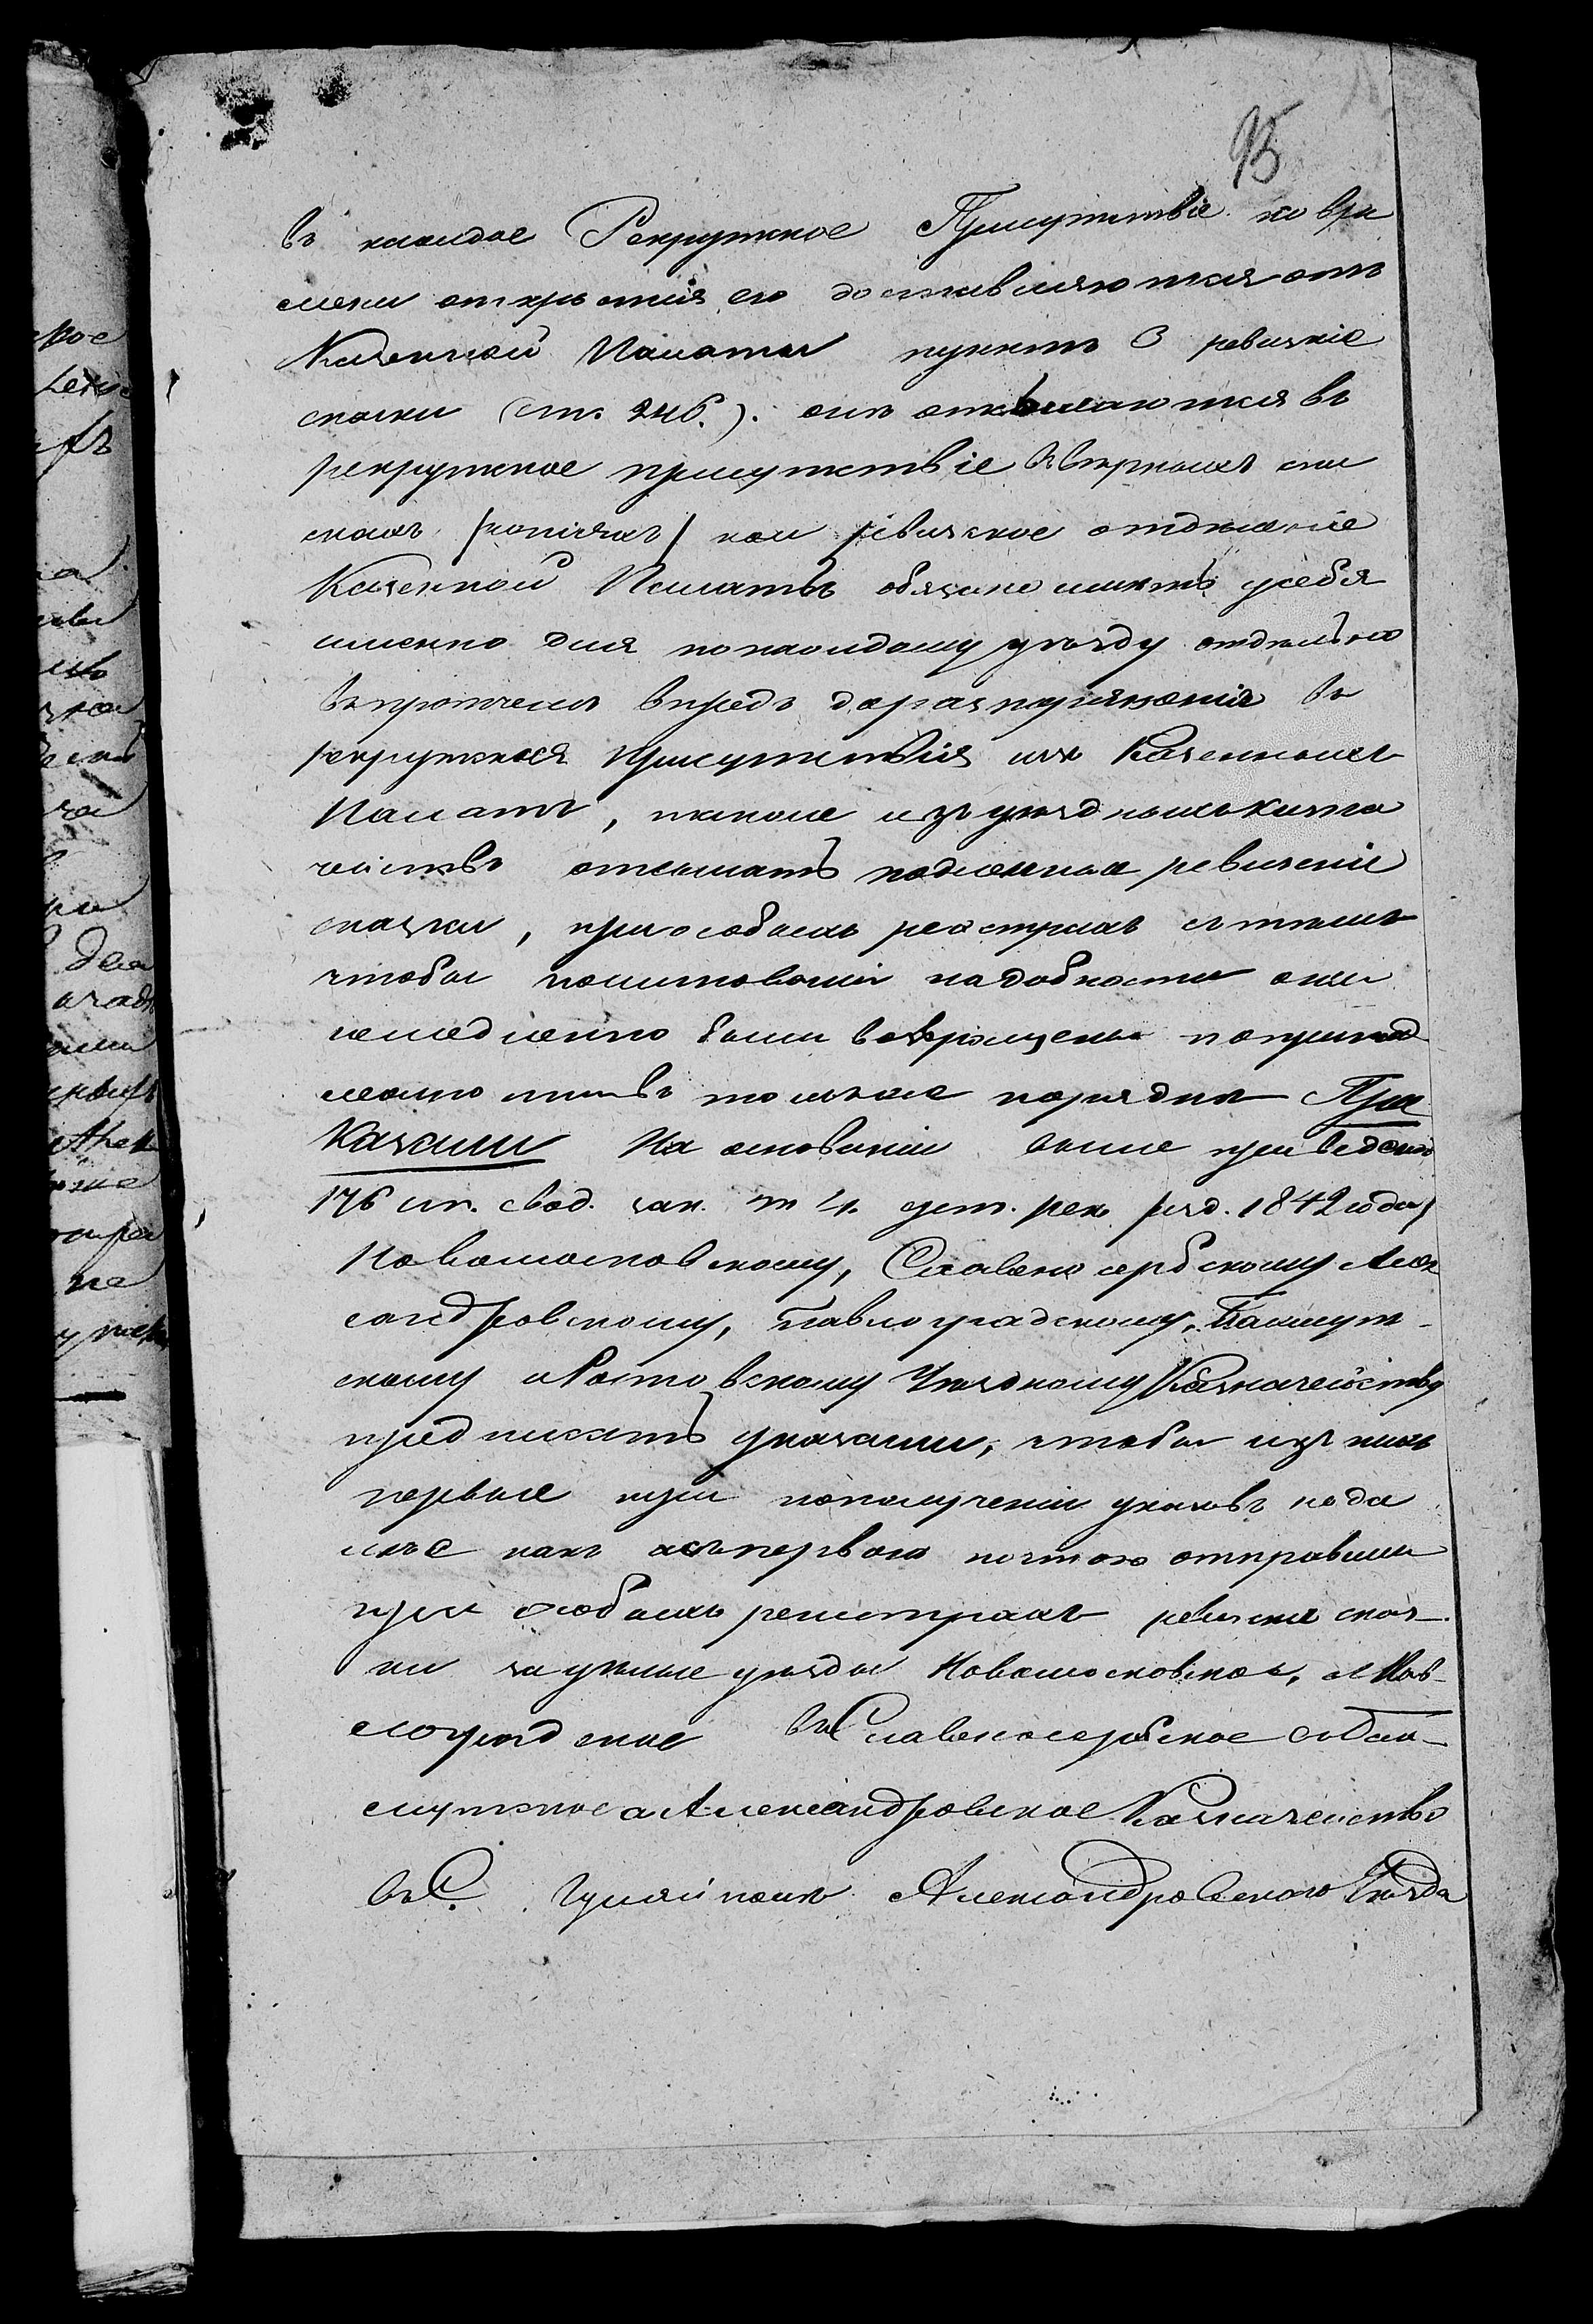 95
въ каждое Рекрутское Присутствіе ко вре
мени открытія его доставляются отъ
Казенной Палаты пунктъ 3 ревизкіе
сказки (ст. 246.). они отсылаются въ
рекрутское присутствіе въ вѣрныхъ спи
скахъ /копіяхъ/ кои ревизское отдѣленіе
Казенной Палаты обязано имѣть у себя
именно для по каждому уѣзду отдѣльно
впрочемъ впредь до разпоряженія въ
рекрутскія присутствія изъ Казенныхъ
Палатъ, также изъ уѣздныхъ казна
чействъ отсылать подлинныя ревизскіе
сказки, при особыхъ реэстрахъ съ тѣмъ
чтобы по минованіи надобности они
немедленно были возвращены по принад
лежности въ томъ же порядкѣ При
казали На основаніи выше приведеной
176 ст. свод. зак. т 4. уст. рек. изд. 1842 года,
Новомосковскому, Славяносербскому Алек
сандровскому, Павлоградскому, Бахмут-
скому и Ростовскому Уѣздному Казначейству
предписать указами, чтобы изъ нихъ
первые при полученіи указовъ не да
лѣе какъ съ первою почтою отправили
при особыхъ реистрахъ ревизскія сказ-
ки за цѣлые уѣзды Новомосковское, и Пав-
лоградское въ Славяносербское Бах-
мутское а Александровское Казначейство
въ С. Гуляйполь Александровскаго Уѣзда